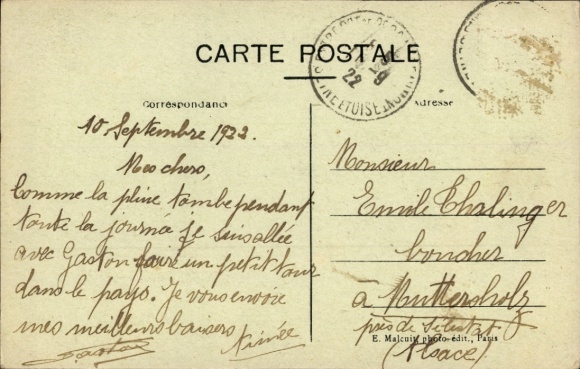 CARTE POSTALE
Correspondance
Adresse
22
SEINE ET OISE
10 Septembre 1922.
Mes chers,
Comme la pluie tambe pendant
toute la journé je suis allée
avec Gaston faire un petit tour
dans le pays. Je vous envoie
mes meilleurs baisers
Gaston Aimée
Monsieur
Emile Thalinger
boucher
à Muttersholz
près de Sélestat
(Alsace)
E. Malcuit, photo-édit., Paris